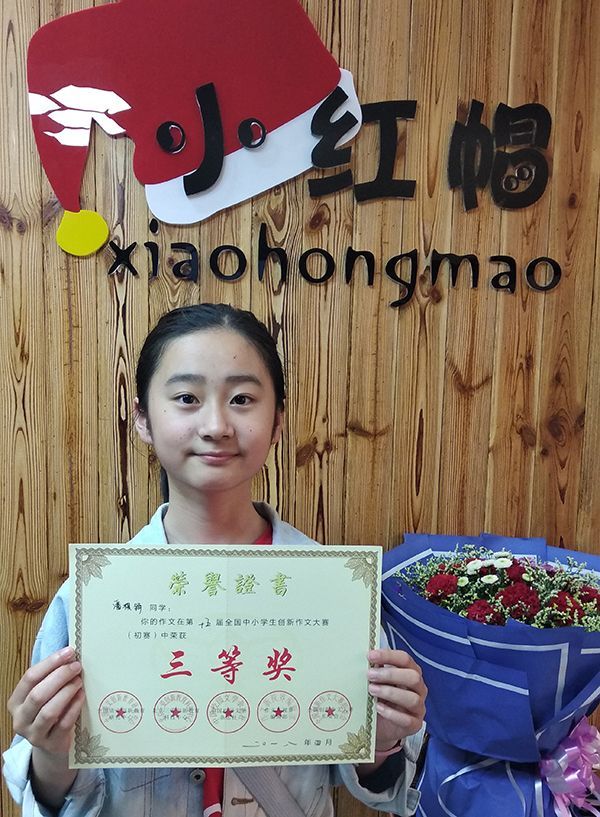 小红帽
xiaohongmao
荣誉證書
同学：
你的作文在第十五届全国中小学生创新作文大赛
（初赛）中荣获
三等奖
二〇一八年四月